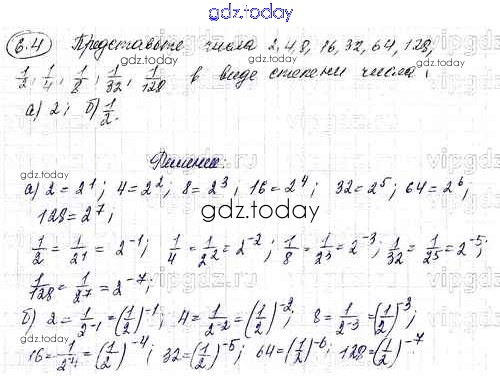 gdz.today gdz.today vipgdz.
6.4 Представьте числа 2, 4 8, 16, 32, 64, 128,
1/2, 1/4, 1/8, 1/32, 1/128 в виде степени числа:
а) 2; б) 1/2.
gdz.today
Решение:
а) 2 = 2^1; 4 = 2^2; 8 = 2^3; 16 = 2^4; 32 = 2^5; 64 = 2^6;
128 = 2^7;
gdz.today
1/2 = 1/2^1 = 2^-1; 1/4 = 1/2^2 = 2^-2; 1/8 = 1/2^3 = 2^-3; 1/32 = 1/2^5 = 2^-5;
1/128 = 1/2^7 = 2^-7;
б) 2 = 1/2^-1 = (1/2)^-1; 4 = 1/2^-2 = (1/2)^-2; 8 = 1/2^-3 = (1/2)^-3;
16 = 1/2^-4 = (1/2)^-4; 32 = (1/2)^-5; 64 = (1/2)^-6; 128 = (1/2)^-7